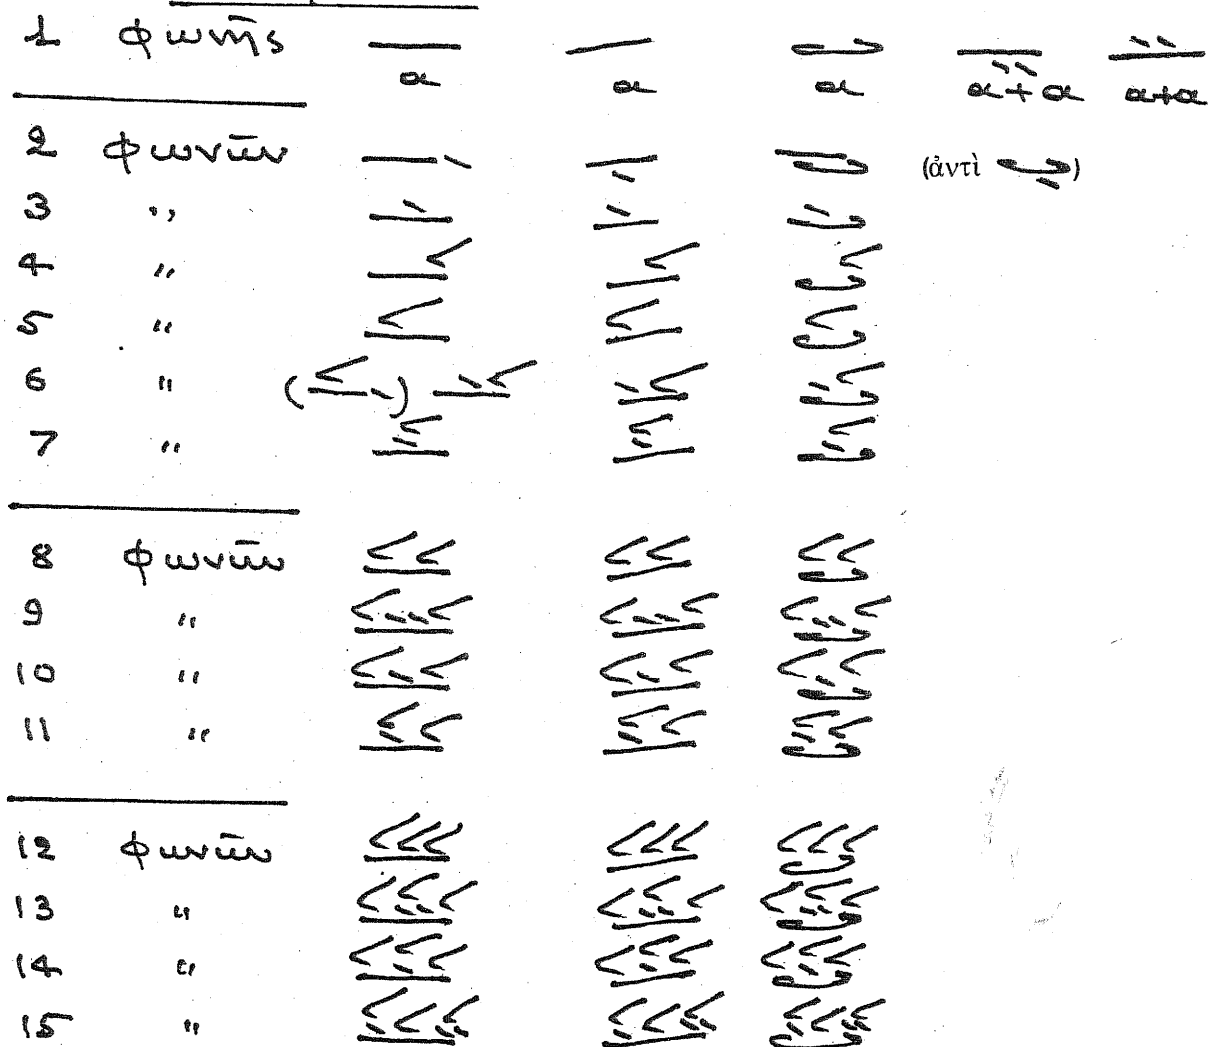 1 φωνῆς
α α α α+α α+α
2 φωνῶν (ἀντὶ )
3 "
4 "
5 "
6 " ( )
7 "
8 φωνῶν
9 "
10 "
11 "
12 φωνῶν
13 "
14 "
15 "